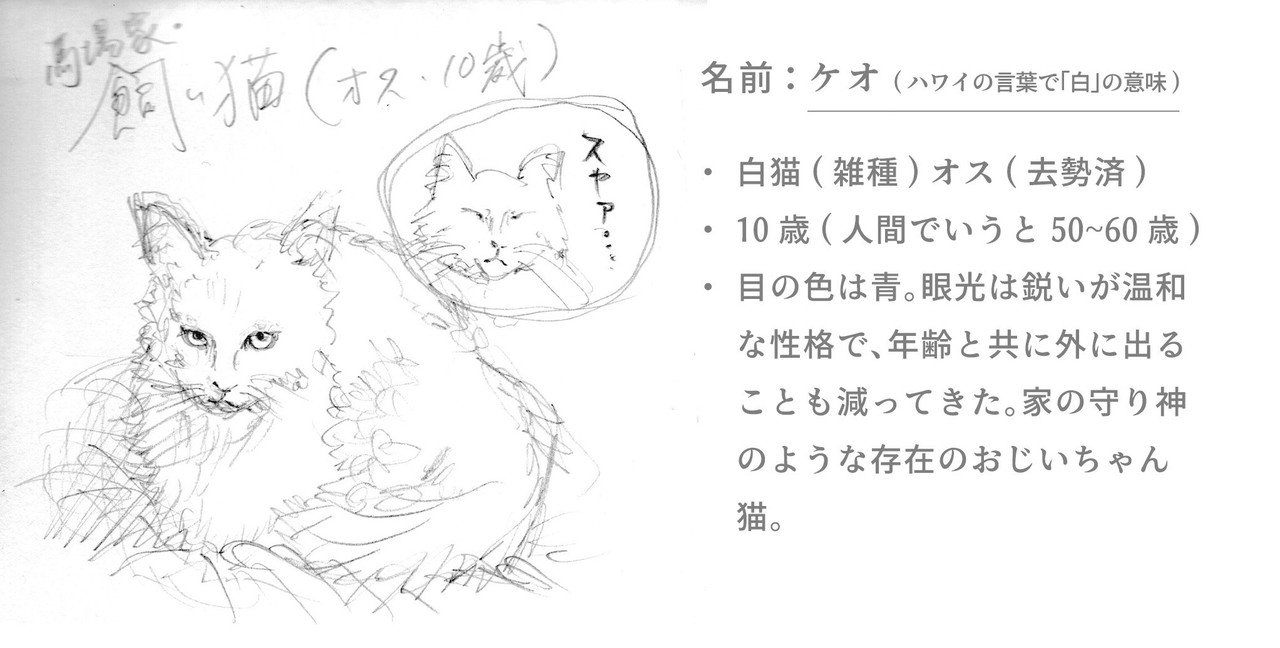 馬場家・
飼い猫(オス・10歳)
スヤァ…
名前：ケオ(ハワイの言葉で「白」の意味)
・ 白猫(雑種)オス(去勢済)
・ 10歳(人間でいうと50~60歳)
・ 目の色は青。眼光は鋭いが温和
な性格で、年齢と共に外に出る
ことも減ってきた。家の守り神
のような存在のおじいちゃん
猫。